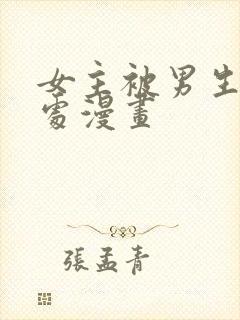 女主被男生
處漫畫
張孟青